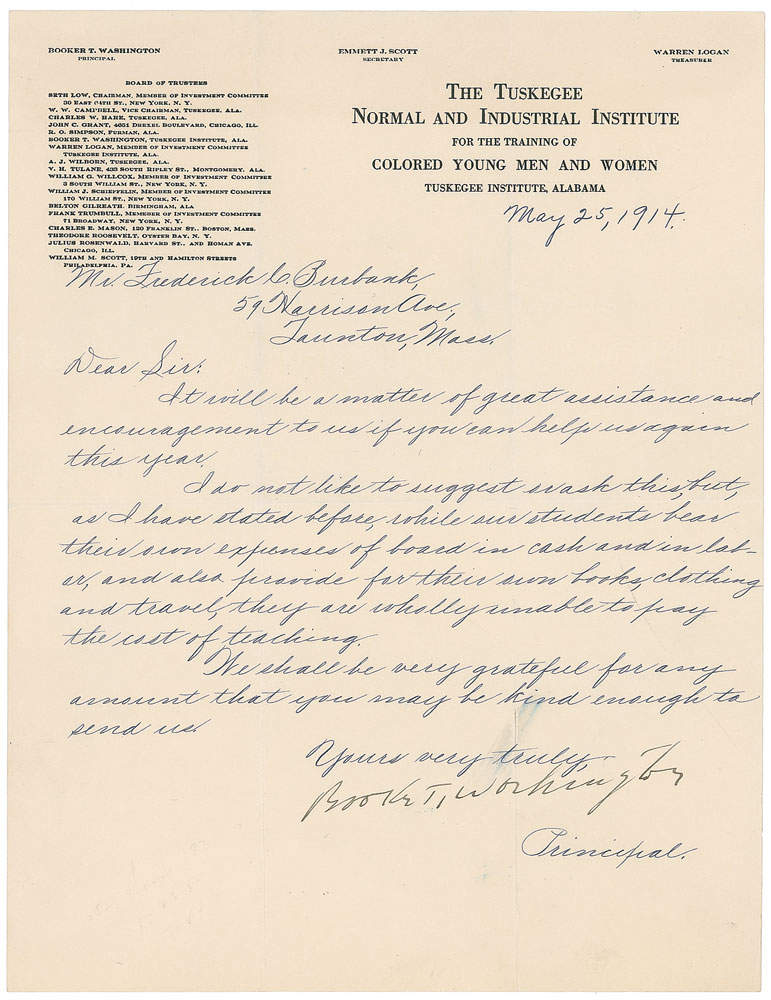 BOOKER T. WASHINGTON
PRINCIPAL
EMMETT J. SCOTT
SECRETARY
WARREN LOGAN
TREASURER
BOARD OF TRUSTEES
SETH LOW, CHAIRMAN, MEMBER OF INVESTMENT COMMITTEE
30 EAST 64TH ST., NEW YORK, N. Y.
W. W. CAMPBELL, VICE CHAIRMAN, TUSKEGEE, ALA.
CHARLES W. HARE, TUSKEGEE, ALA.
JOHN C. GRANT, 4051 DREXEL BOULEVARD, CHICAGO, ILL.
R. O. SIMPSON, FURMAN, ALA.
BOOKER T. WASHINGTON, TUSKEGEE INSTITUTE, ALA.
WARREN LOGAN, MEMBER OF INVESTMENT COMMITTEE
TUSKEGEE INSTITUTE, ALA.
A. J. WILBORN, TUSKEGEE, ALA.
V. H. TULANE, 433 SOUTH RIPLEY ST., MONTGOMERY, ALA.
WILLIAM G. WILLCOX, MEMBER OF INVESTMENT COMMITTEE
3 SOUTH WILLIAM ST., NEW YORK, N. Y.
WILLIAM J. SCHIEFFELIN, MEMBER OF INVESTMENT COMMITTEE
170 WILLIAM ST., NEW YORK, N. Y.
BELTON GILREATH, BIRMINGHAM, ALA
FRANK TRUMBULL, MEMEBER OF INVESTMENT COMMITTEE
71 BROADWAY, NEW YORK, N. Y.
CHARLES E. MASON, 120 FRANKLIN ST., BOSTON, MASS.
THEODORE ROOSEVELT, OYSTER BAY, N. Y.
JULIUS ROSENWALD, HARVARD ST., AND HOMAN AVE.
CHICAGO, ILL.
WILLIAM M. SCOTT, 19TH AND HAMILTON STREETS
PHILADELPHIA, PA.
THE TUSKEGEE
NORMAL AND INDUSTRIAL INSTITUTE
FOR THE TRAINING OF
COLORED YOUNG MEN AND WOMEN
TUSKEGEE INSTITUTE, ALABAMA
May 25, 1914.
Mr. Frederick C. Burbank,
59 Harrison Ave.,
Taunton, Mass.
Dear Sir:
It will be a matter of great assistance and
encouragement to us if you can help us again
this year.
I do not like to suggest or ask this, but,
as I have stated before, while our students bear
their own expenses of board in cash and in lab-
or, and also provide for their own books, clothing
and travel, they are wholly unable to pay
the cost of teaching.
We shall be very grateful for any
amount that you may be kind enough to
send us.
Yours very truly,
Booker T. Washington
Principal.